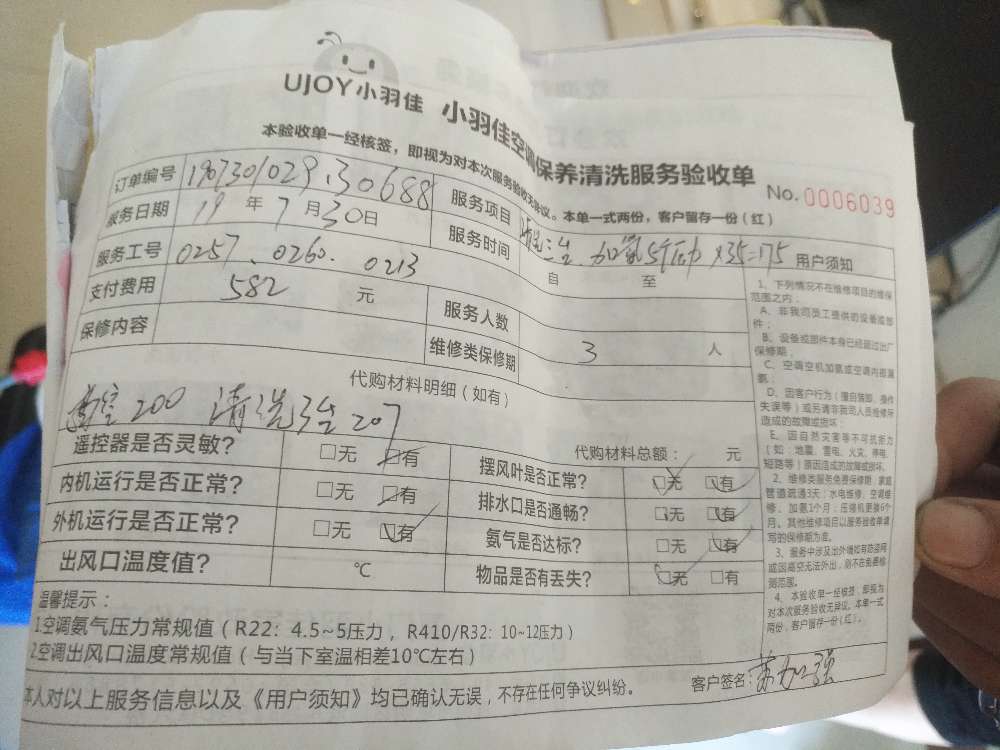 UJOY小羽佳 小羽佳空调保养清洗服务验收单
本验收单一经核签，即视为对本次服务验收无异议。本单一式两份，客户留存一份（红）
No. 0006039
订单编号 1907301029.30688 服务项目 清洗三台 加氨5个压力 ×35=175
服务日期 19 年 7 月 30 日 服务时间 自 至
服务工号 0257、0260. 0213
支付费用 582 元 服务人数 3 人
保修内容 维修类保修期
代购材料明细（如有）
200 清洗3台 207
代购材料总额： 元
遥控器是否灵敏? □无 □有 摆风叶是否正常? □无 □有
内机运行是否正常? □无 □有 排水口是否通畅? □无 □有
外机运行是否正常? □无 □有 氨气是否达标? □无 □有
出风口温度值? ℃ 物品是否有丢失? □无 □有
用户须知
1、下列情况不在维修项目的维保
范围之内：
A、非我司员工提供的设备或部
件；
B、设备或部件本身已经超过出厂
保修期；
C、空调空机加氨或空调内漏漏
氨；
D、因客户行为（擅自装卸、操作
失误等）或另请非我司人员维修所
造成的故障或损坏；
E、因自然灾害等不可抗拒力
（如：地震、雷电、火灾、停电、
短路等）原因造成的故障或损坏。
2、维修类服务免费保修期，家庭
管道疏通3天；水电维修、空调维
修、加氨1个月；压缩机更换6个
月。其他维修项目以服务验收单填
写的保修期为准。
3、服务中涉及出外墙如有防盗网
或因高空无法外出，则不在免费维
保范围。
4、本验收单一经核签，即视为
对本次服务验收无异议。本单一式
两份，客户留存一份（红）。
温馨提示：
1.空调氨气压力常规值（R22：4.5~5压力，R410/R32：10~12压力）
2.空调出风口温度常规值（与当下室温相差10℃左右）
本人对以上服务信息以及《用户须知》均已确认无误，不存在任何争议纠纷。 客户签名：